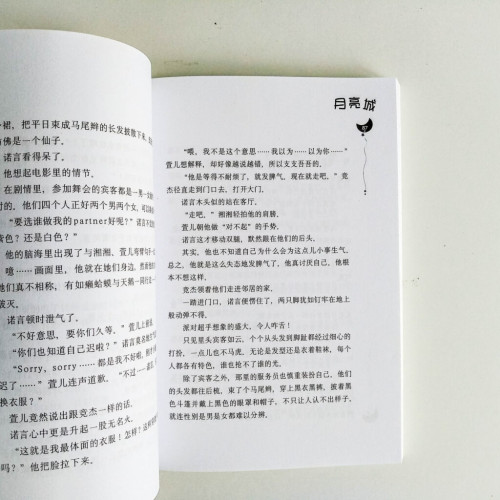 裙，把平日束成马尾辫的长发披散下来，
佛是一个仙子。
诺言看得呆了。
他想起电影里的情节。
在剧情里，参加舞会的宾客都是一男一女的
伴。他们四个人正好两个男两个女，可以
“要选谁做我的partner好呢？”诺言
色？还是白色？”
他的脑海里出现了与湘湘、萱儿弯臂勾手
噎……画面里，他就在她们身边，然而
她们真不相称，有如癞蛤蟆与天鹅一同
破灭。
诺言顿时泄气了。
“不好意思，要你们久等。”萱儿上
“你们也知道自己迟啦？”诺言
“Sorry，sorry……都是我不好啦，
迟了……”萱儿连声道歉，“不过——
换衣服？”
萱儿竟然说出跟竞杰一样的话。
诺言心中更是升起一股无名火。
“这就是我最体面的衣服！怎样？
吗？”他把脸拉下来。
月亮城
67
“喂，我不是这个意思……我以为……以为你……”
萱儿想解释，却好像越说越错，所以支支吾吾的。
“他是等得不耐烦了，就发脾气，现在就走吧。”竞
杰径直走到门口去，打开大门。
诺言木头似的站在客厅。
“走吧。”湘湘轻拍他的肩膀。
萱儿朝他做“对不起”的手势。
诺言这才移动双腿，默然跟在他们的后头。
其实，他也不知道自己为什么会为这点儿小事生气，
总之，他就是这么失态地发脾气了，他真讨厌自己，他根
本不想这样。
竞杰领着他们走进邻居的家。
一踏进门口，诺言便愣住了，两只脚犹如钉牢在地上
般动弹不得。
派对超乎想象的盛大，令人咋舌！
只见里头宾客如云，个个从头发到脚趾都经过细心的
打扮，一点儿也不马虎，无论是发型还是衣着鞋袜，每个
人都各有特色，谁也抢不了谁的光。
除了宾客之外，那里的服务员也慎重装扮自己，他们
的头发都往后梳，束了个马尾辫，穿上黑衣黑裤，披着黑
色斗篷并戴上黑色的眼罩和帽子，不只让人认不出样子，
就连性别是男是女都难以分辨。